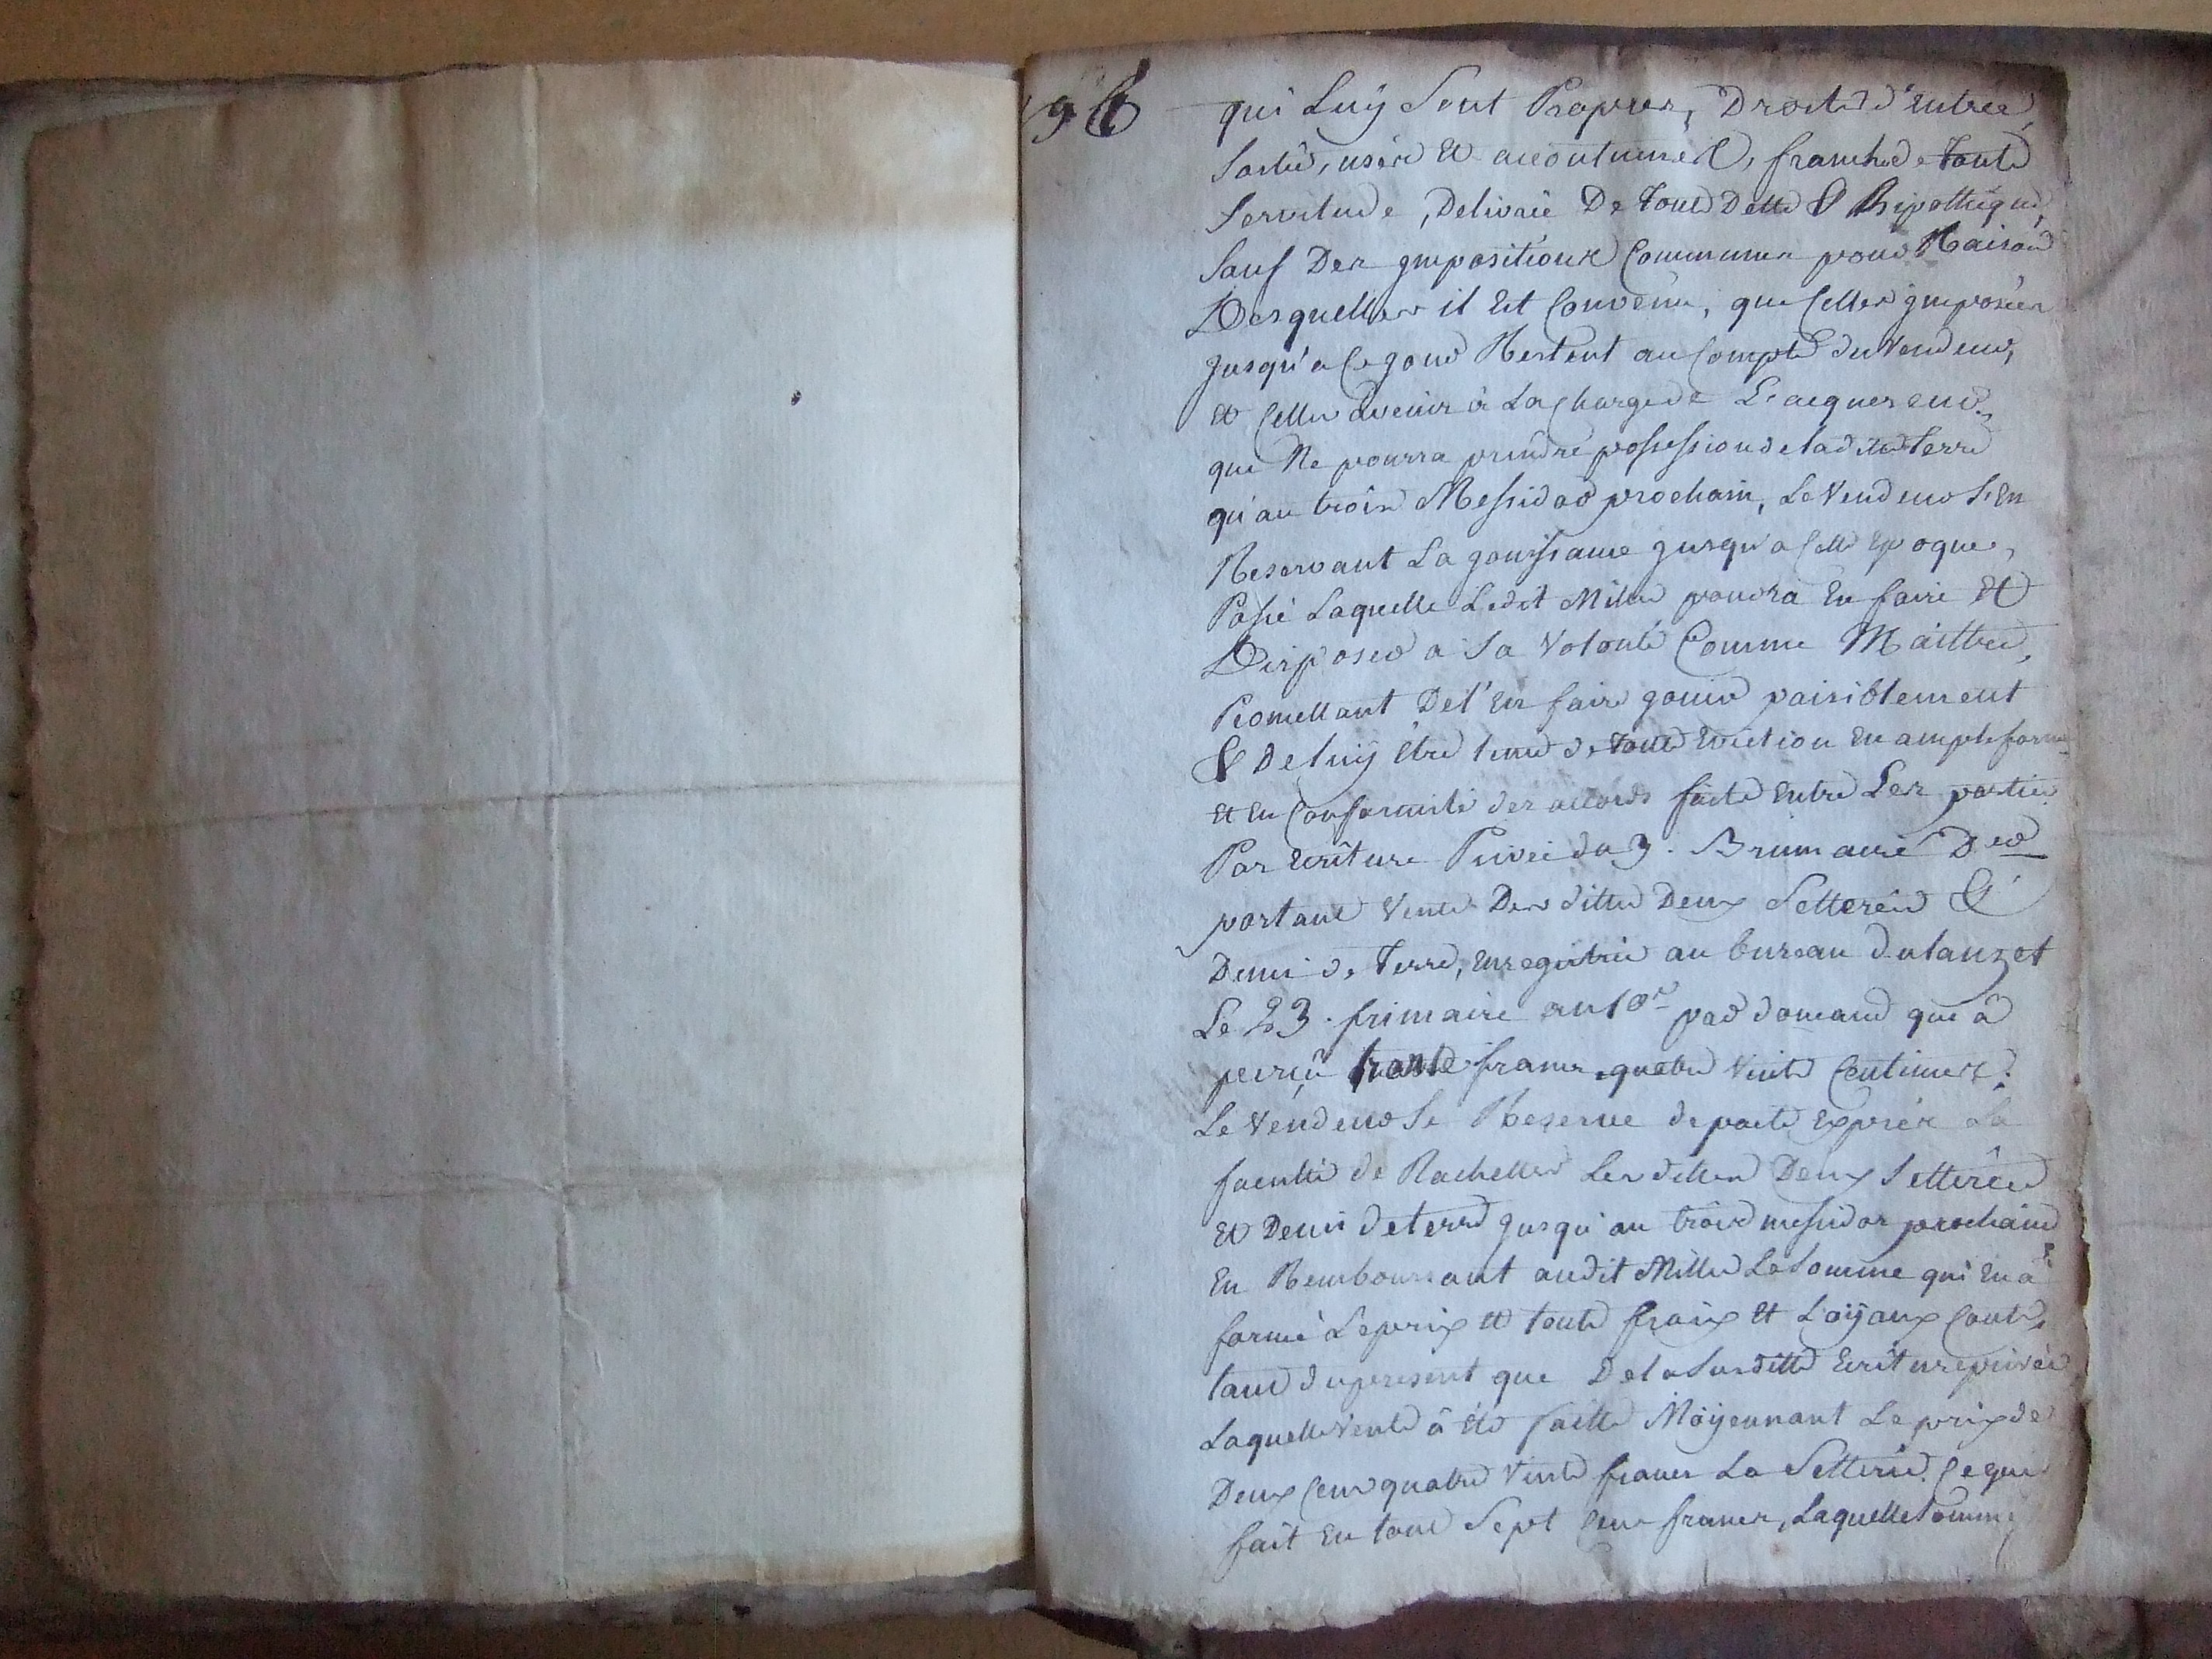 qui Luÿ Sont Propres, Droits d'Entrée,
Sortie, usés Et accoutumés, franche de toute
Servitude, Delivrée De toute Dette & hipotheque,
Sauf Des jmpositions Communes pour Raison
Desquelles il Est Convenu, que Celles jmposées
Jusqu'a Ce jour Restent au Compte du Vendeur,
Et Celles avenir à La Charge de L'acquereur,
que Ne pourra prendre possession de ladite terre
qu'au trois Messidor prochain, Le Vendeur S'En
Reservant La jouissance jusqu'a Cette Epoque,
Passé Laquelle Ledit Mille pourra En faire Et
Disposer a Sa Volonté Comme Maittre,
Promettant De l'En faire jouir paisiblement
& De luÿ être tenu de toute Eviction En ample forme
Et En Conformité des accords faits Entre Les parties
Par Ecriture Privée du 3. Brumaire D.er
portant Vente Des dittes Deux Setterées &
Demi de Terre, Enregistrée au bureau du lauzet
Le 23. frimaire an 10e par domand que à
perçu trante francs quatre Vints Centimes.
Le Vendeur Se Reserve de pacte Exprès La
faculté de Rachetter Les dittes Deux Setterées
Et Demi de terre jusqu'au trois messidor prochain
En Remboursant audit Mille La Somme qui En a
formé Le prix Et touts fraix Et Loÿaux Couts,
tant du present que De la Susditte Ecriture privée
Laquelle Vente à Eté faitte Moÿennant Le prix de
Deux Cens quatre Vints francs La Setterée. Ce que
fait En tout Sept Cens francs, Laquelle Somme